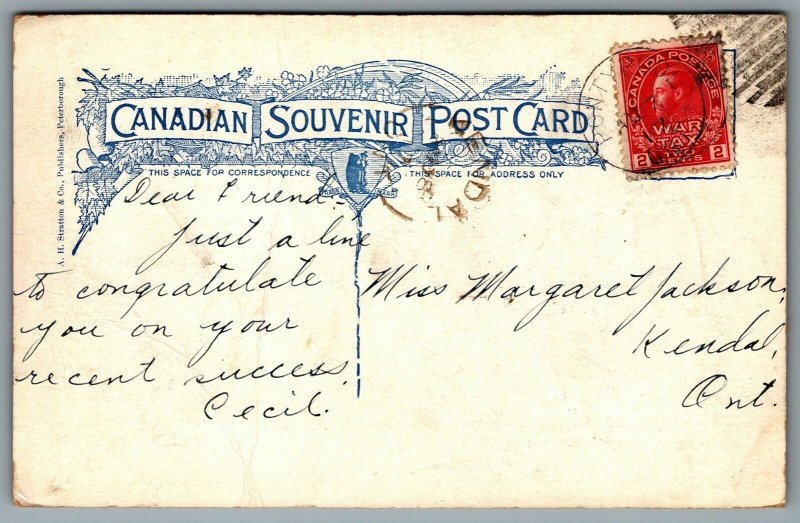 CANADIAN SOUVENIR POST CARD
THIS SPACE FOR CORRESPONDENCE
THIS SPACE FOR ADDRESS ONLY
A. H. Stratton & Co., Publishers, Peterborough
CANADA POSTAGE
WAR
TAX
2 CENTS 2
KENDAL
Dear Friend:-
Just a line
to congratulate
you on your
recent success.
Cecil.
Miss Margaret Jackson,
Kendal,
Ont.